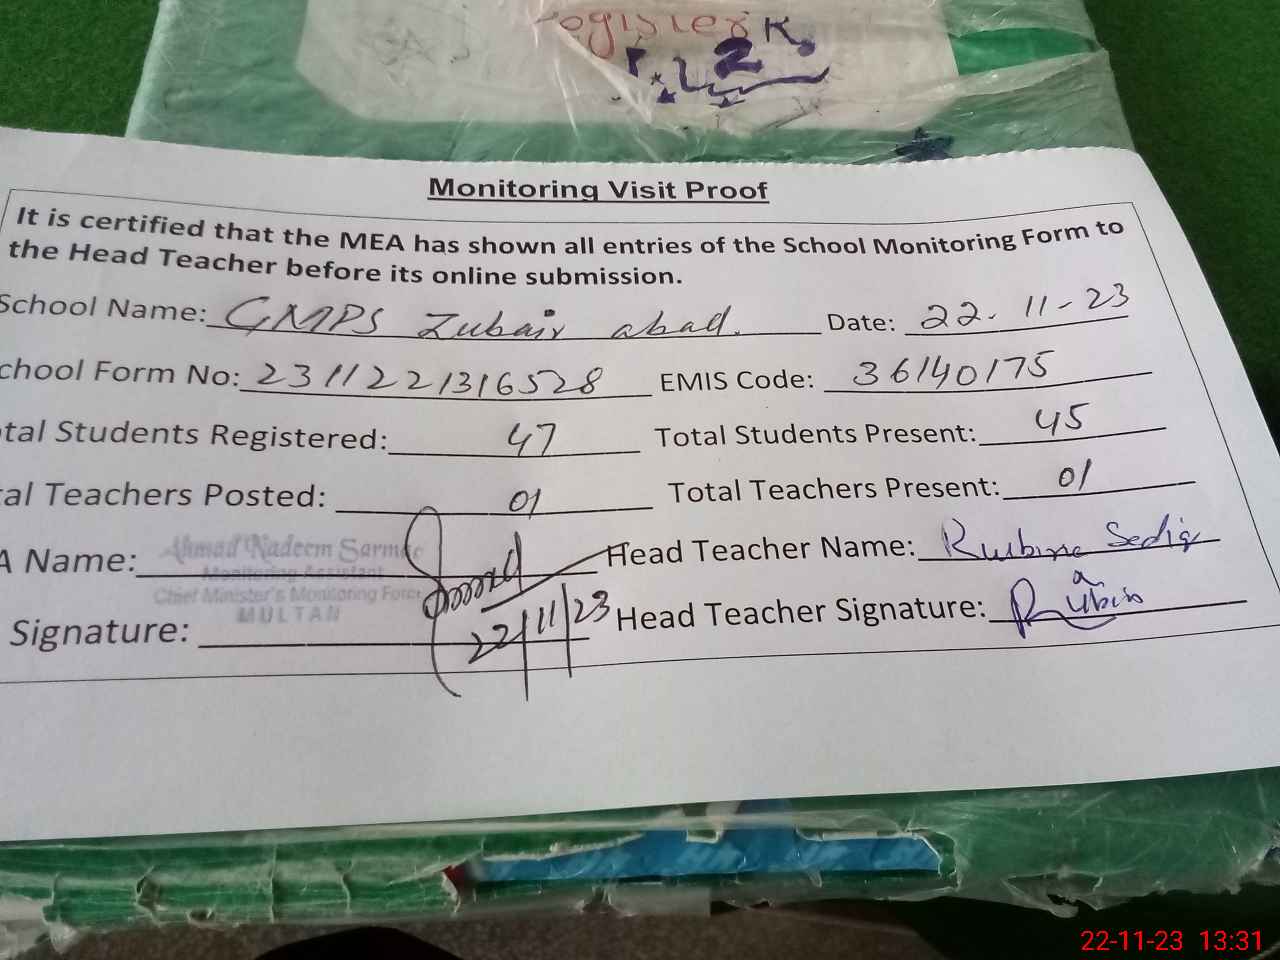 Register K.
2
Monitoring Visit Proof
It is certified that the MEA has shown all entries of the School Monitoring Form to
the Head Teacher before its online submission.
School Name: GMPS Zubair abad. Date: 22-11-23
chool Form No: 2311221316528 EMIS Code: 36140175
tal Students Registered: 47 Total Students Present: 45
al Teachers Posted: 01 Total Teachers Present: 01
A Name: Ahmad Nadeem Sarmad Head Teacher Name: Rubina Sediq
Monitoring Assistant
Chief Minister's Monitoring Force
MULTAN
Signature: 22/11/23 Head Teacher Signature: Rubina
22-11-23 13:31